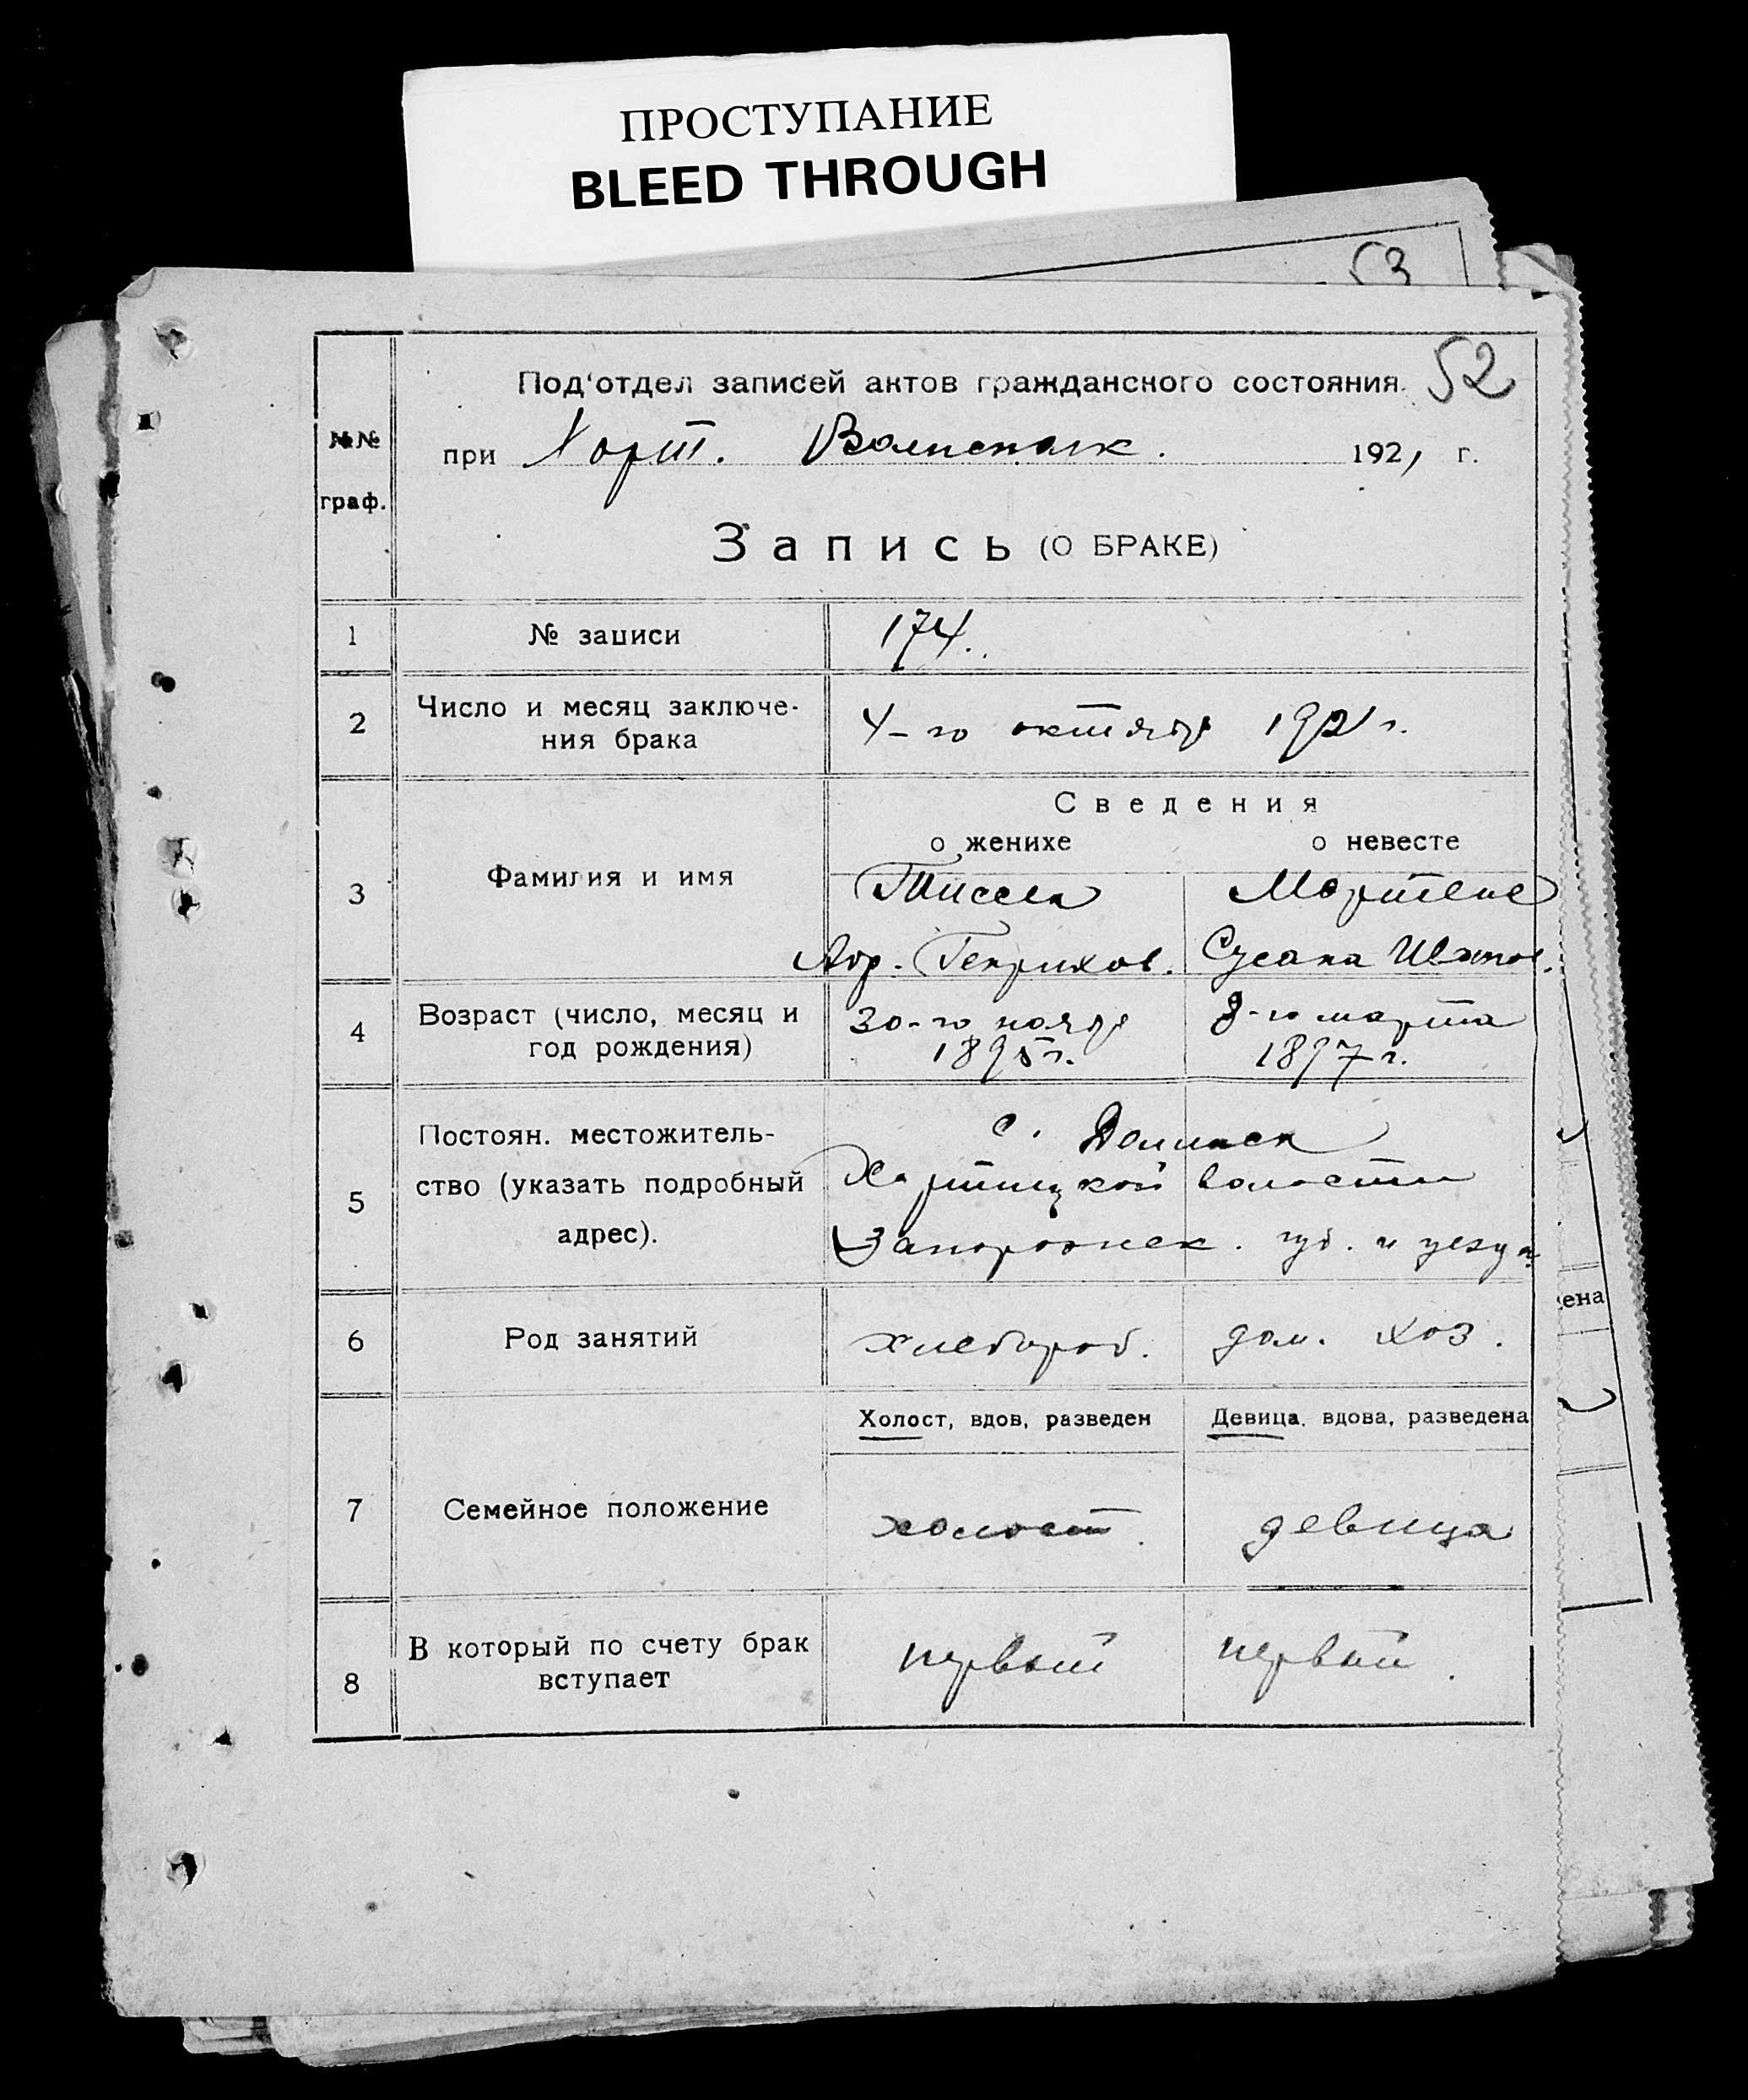 ПРОСТУПАНИЕ
BLEED THROUGH
53
52
Под'отдел записей актов гражданского состояния.
№№ граф.
при Хорт. Волисполк. 1921 г.
Запись (О БРАКЕ)
1 № записи 174.
2 Число и месяц заключе-
ния брака 4-го октября 1921 г.
Сведения
о женихе о невесте
3 Фамилия и имя Тиссен Мартенс
Абр. Генрихов. Сусана Иванов.
4 Возраст (число, месяц и
год рождения) 30-го ноября 8-го марта
1895 г. 1897 г.
5 Постоян. местожитель-
ство (указать подробный
адрес).
с. Долинск
Хортицкой волости
Запорожск. губ. и уезда
6 Род занятий хлебороб. дом. хоз.
Холост, вдов, разведен Девица, вдова, разведена
7 Семейное положение холост. девица
8 В который по счету брак
вступает первый первый.
ена